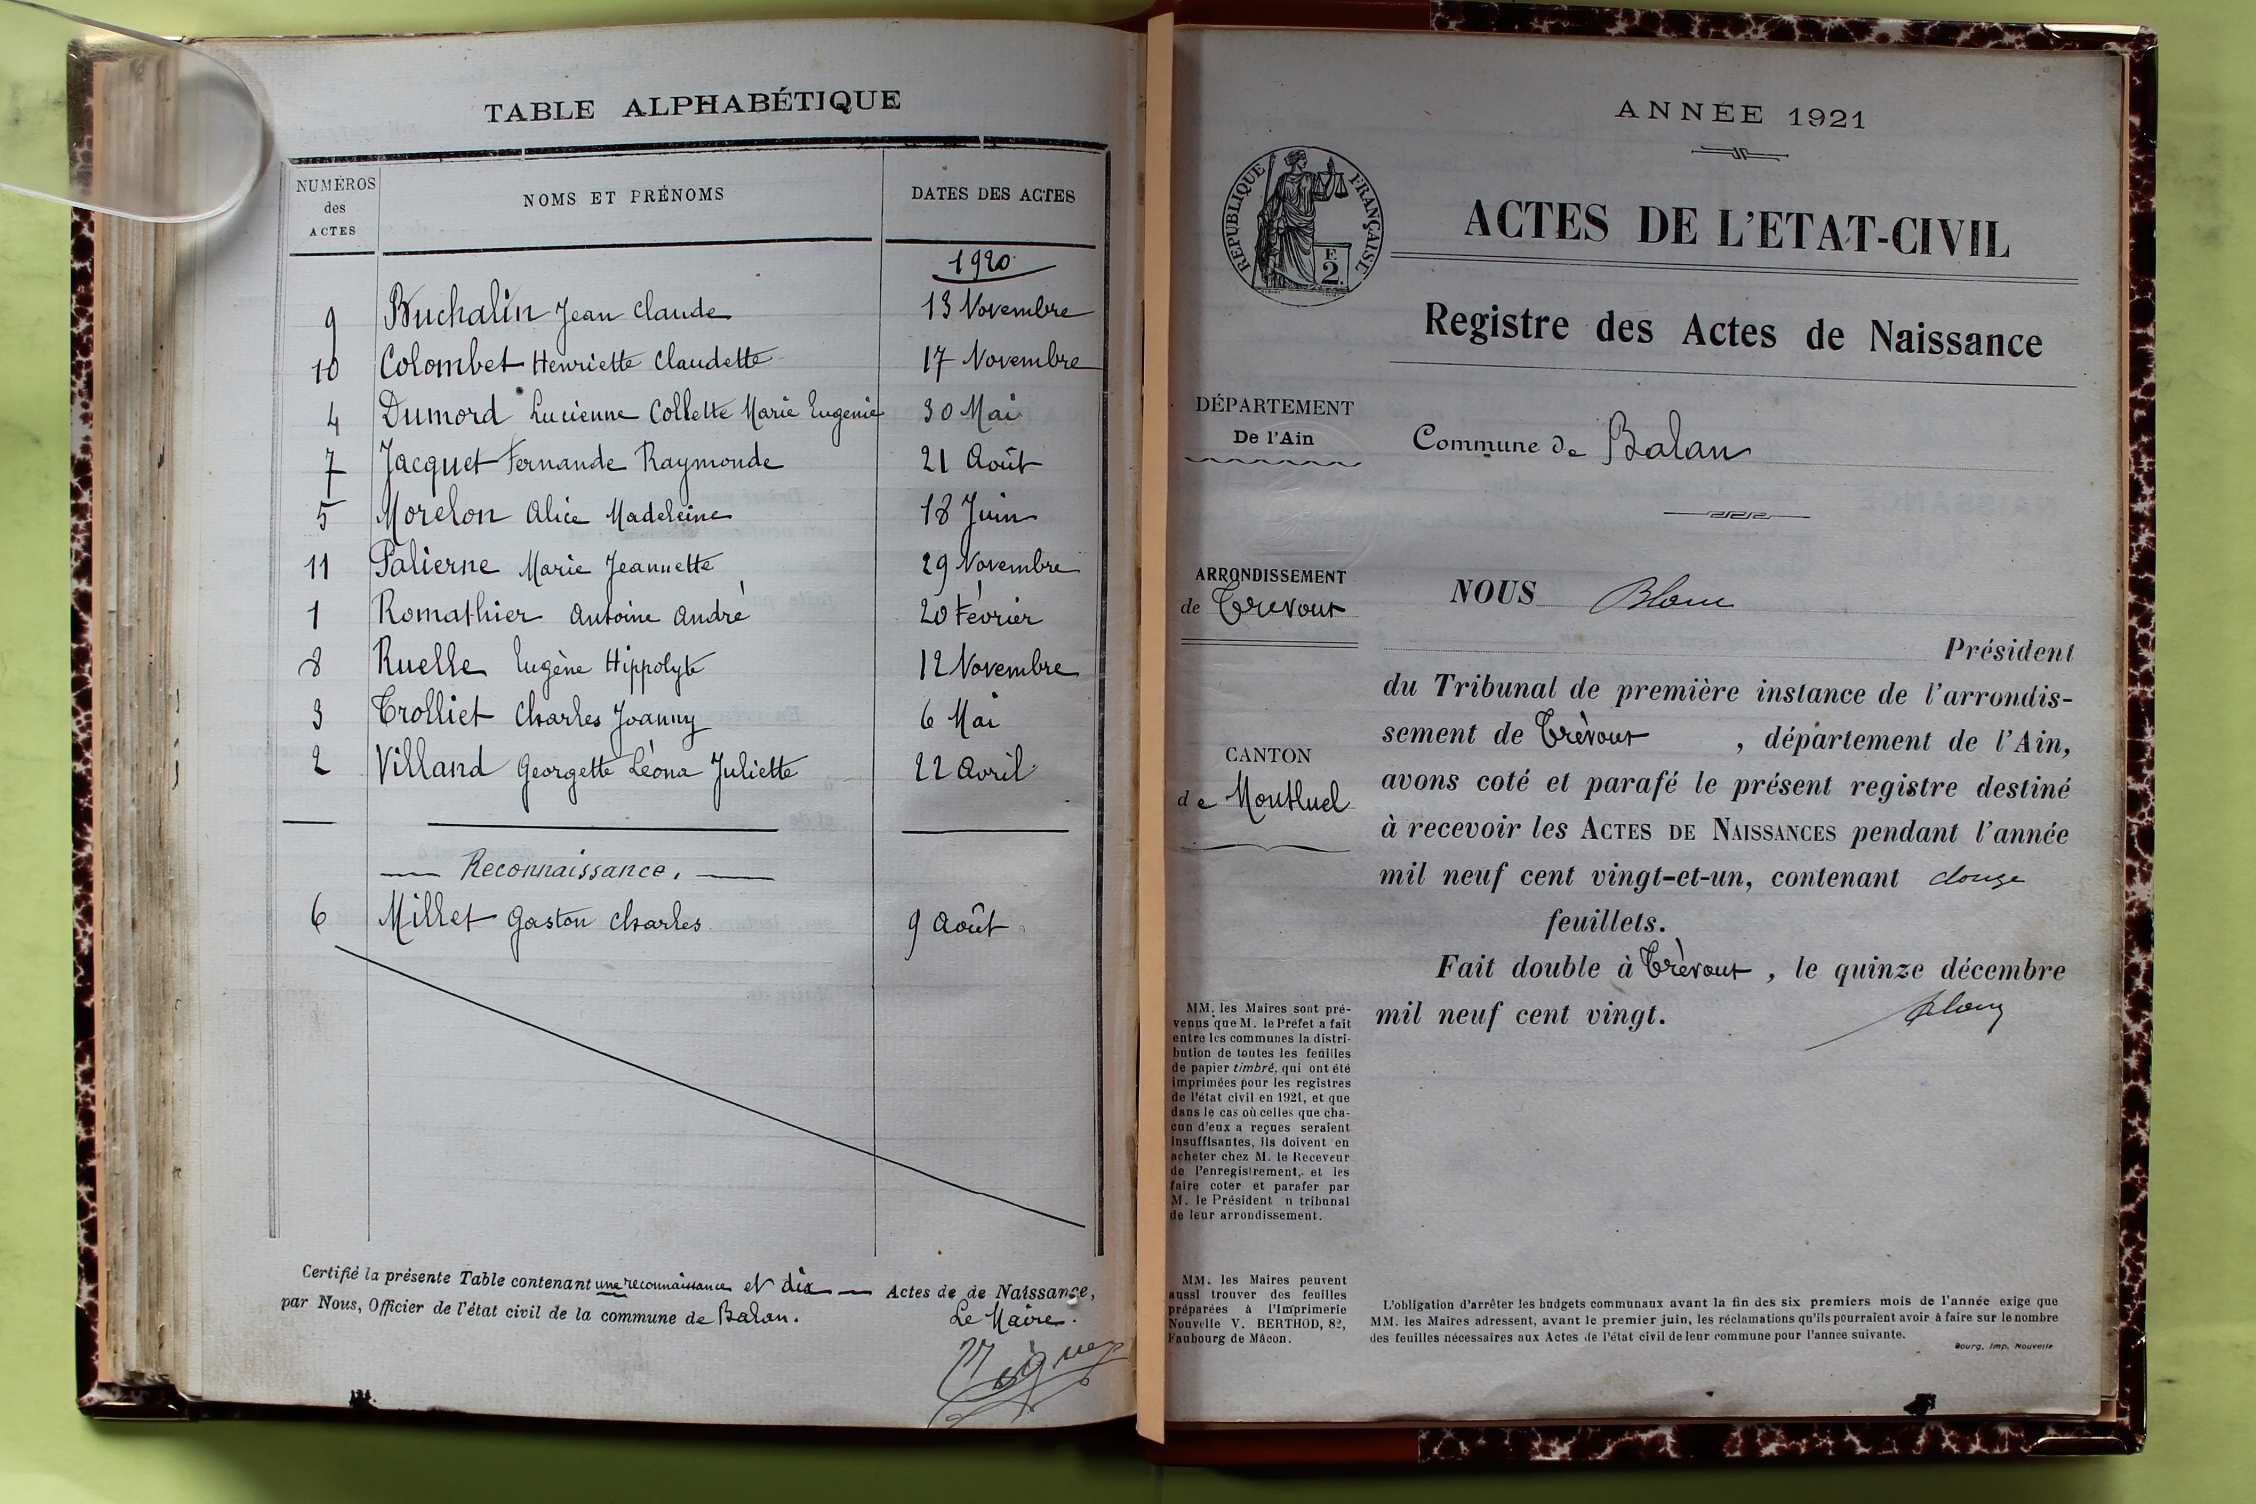 TABLE ALPHABÉTIQUE
NUMÉROS des ACTES
NOMS ET PRÉNOMS
DATES DES ACTES
1920
9 Buchalin Jean Claude 13 Novembre
10 Colombet Henriette Claudette 17 Novembre
4 Dumord Lucienne Collette Marie Eugenie 30 Mai
7 Jacquet Fernande Raymonde 21 Août
5 Morelon Alice Madeleine 18 Juin
11 Palierne Marie Jeannette 29 Novembre
1 Romathier Antoine André 20 Février
8 Ruelle Eugène Hippolyte 12 Novembre
3 Trolliet Charles Joanny 6 Mai
2 Villand Georgette Léona Juliette 22 Avril
Reconnaissance.
6 Millet Gaston Charles 9 Août
Certifié la présente Table contenant une reconnaissance et dix Actes de de Naissance,
par Nous, Officier de l'état civil de la commune de Balan.
Le Maire.
ANNÉE 1921
RÉPUBLIQUE FRANÇAISE
F.
2
ACTES DE L'ETAT-CIVIL
Registre des Actes de Naissance
DÉPARTEMENT
De l'Ain
Commune de Balan
ARRONDISSEMENT
de Trévoux
CANTON
de Montluel
NOUS Blanc
Président
du Tribunal de première instance de l'arrondis-
sement de Trévoux , département de l'Ain,
avons coté et parafé le présent registre destiné
à recevoir les ACTES DE NAISSANCES pendant l'année
mil neuf cent vingt-et-un, contenant douze
feuillets.
Fait double à Trévoux , le quinze décembre
mil neuf cent vingt.
Blanc
MM. les Maires sont pré-
venus que M. le Préfet a fait
entre les communes la distri-
bution de toutes les feuilles
de papier timbré, qui ont été
imprimées pour les registres
de l'état civil en 1921, et que
dans le cas où celles que cha-
cun d'eux a reçues seraient
insuffisantes, ils doivent en
acheter chez M. le Receveur
de l'enregistrement, et les
faire coter et parafer par
M. le Président n tribunal
de leur arrondissement.
MM. les Maires peuvent
aussi trouver des feuilles
préparées à l'Imprimerie
Nouvelle V. BERTHOD, 82,
Faubourg de Mâcon.
L'obligation d'arrêter les budgets communaux avant la fin des six premiers mois de l'année exige que
MM. les Maires adressent, avant le premier juin, les réclamations qu'ils pourraient avoir à faire sur le nombre
des feuilles nécessaires aux Actes de l'état civil de leur commune pour l'année suivante.
Bourg, Imp. Nouvelle